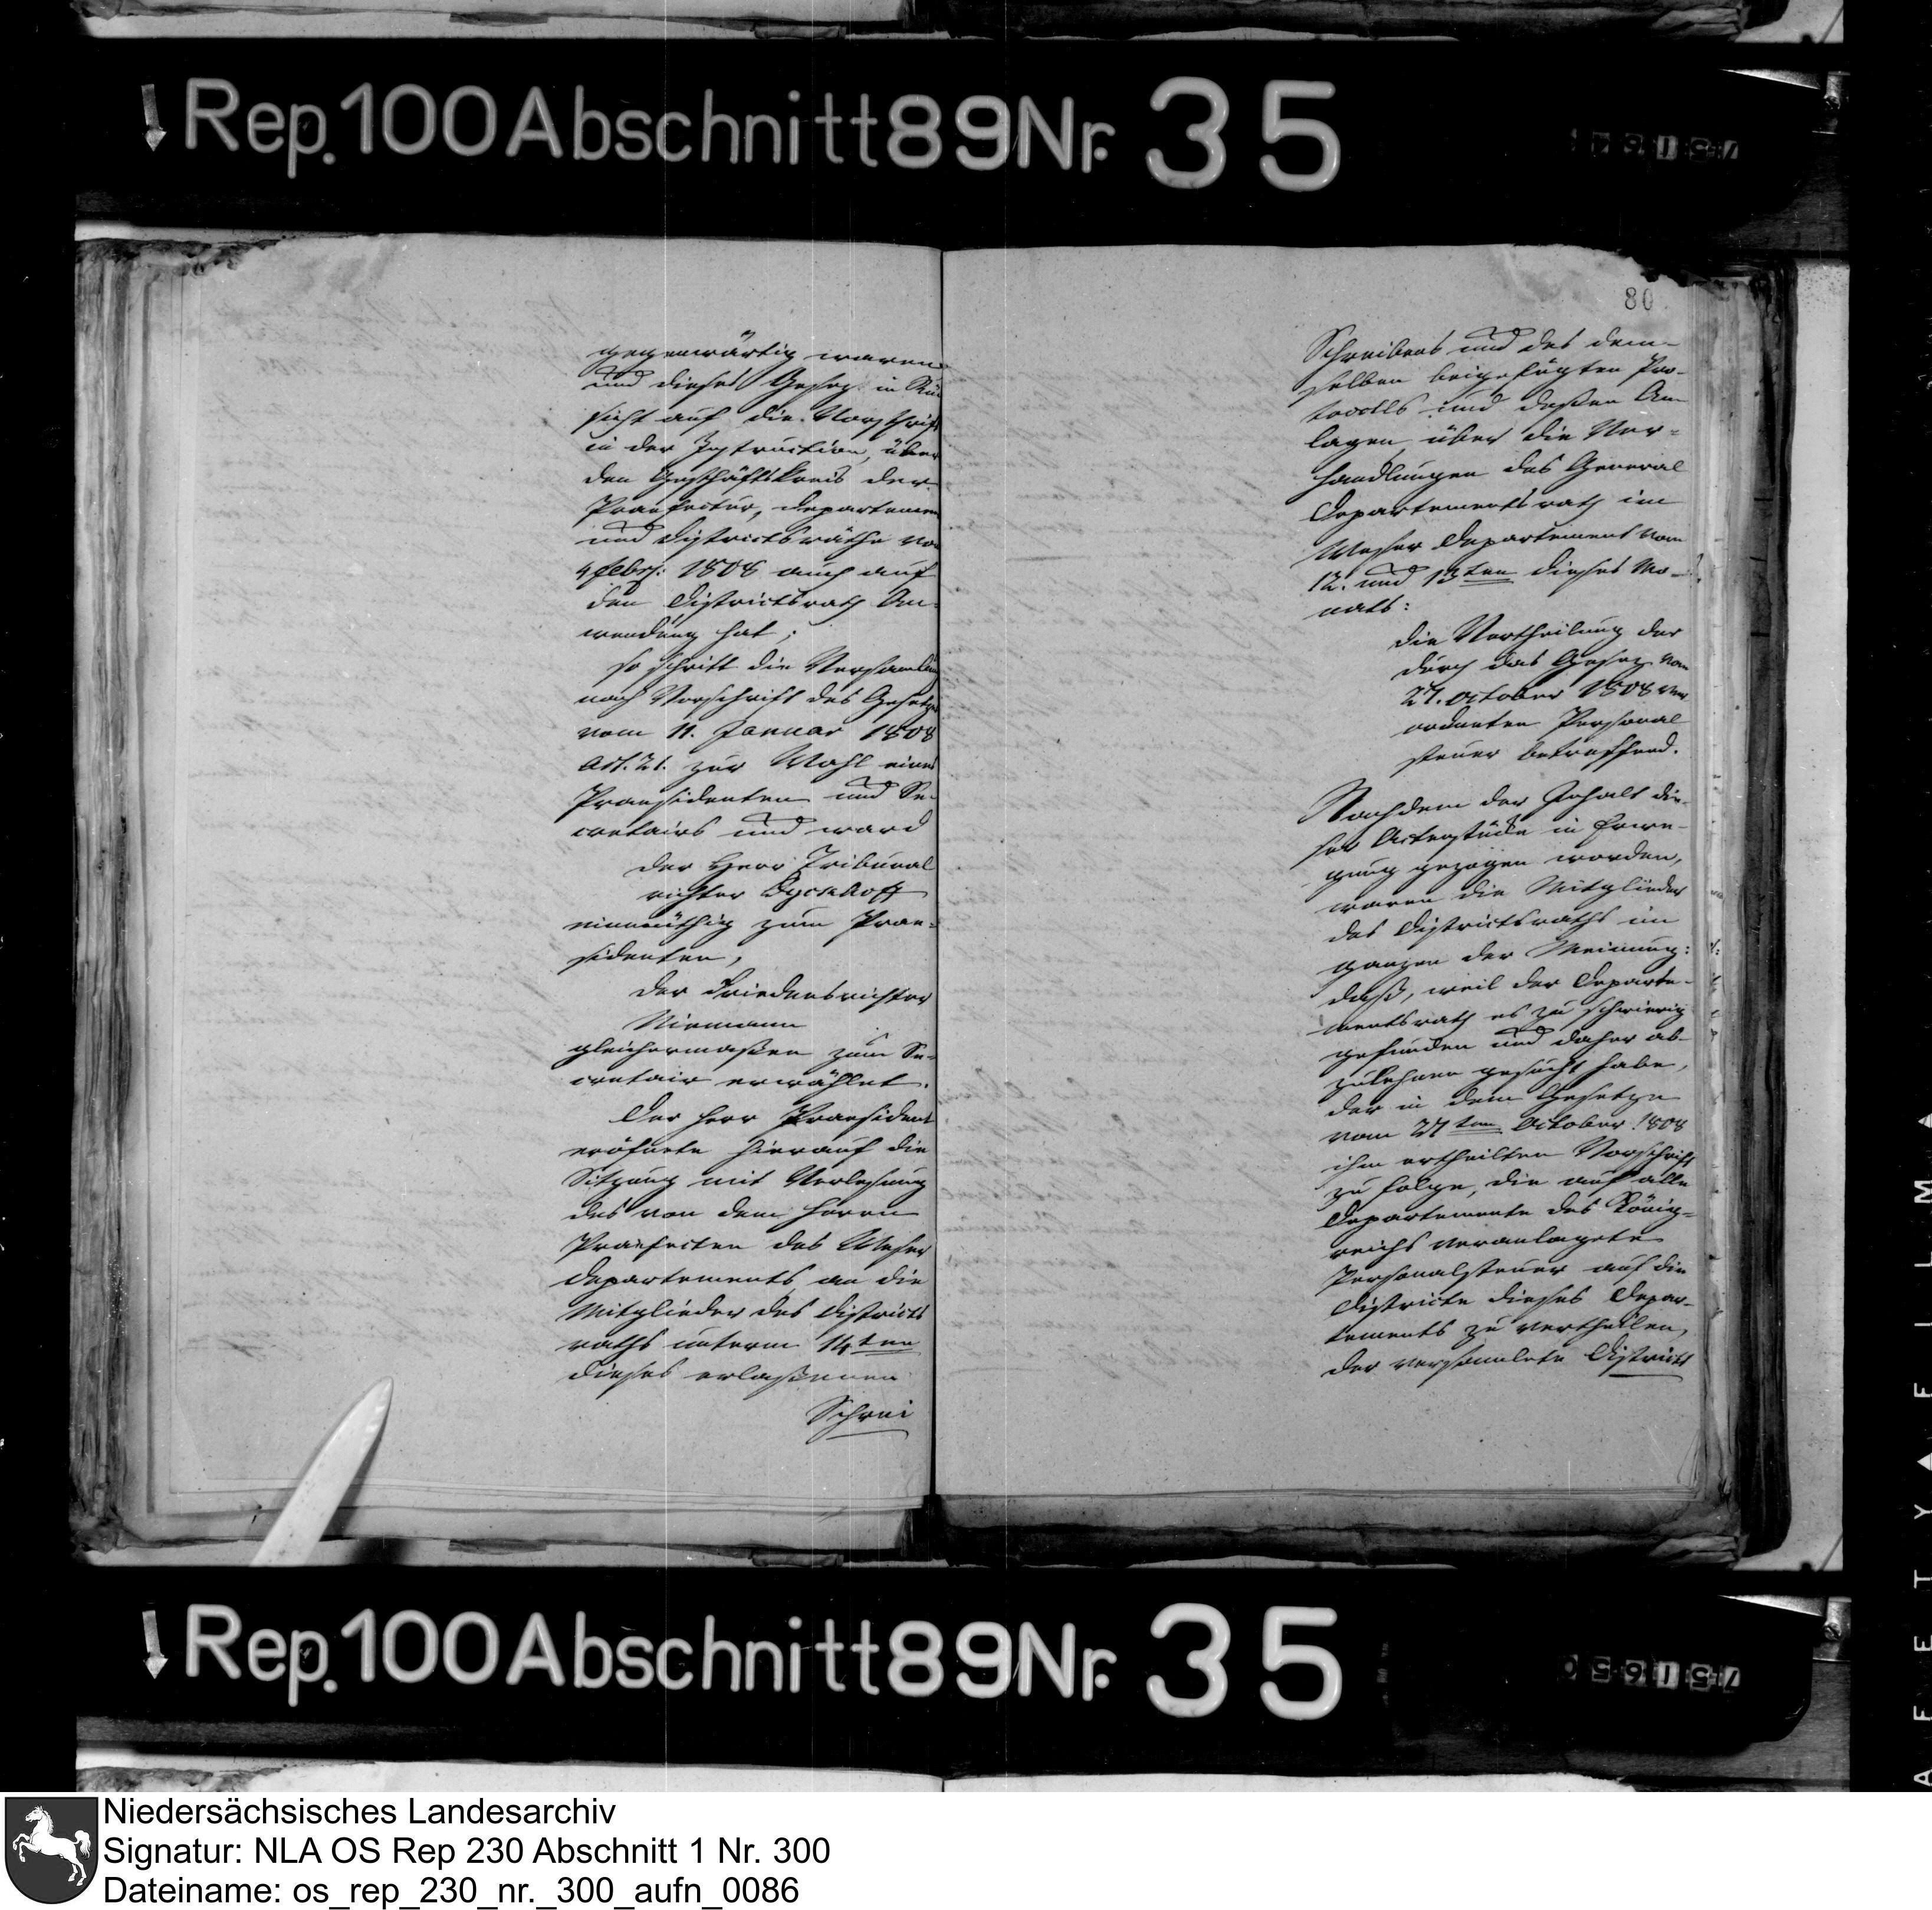 Rep. 100 Abschnitt 89 Nr. 35
gegenwärtig waren
und dieses Gesez in Rük
sicht auf die Vorschrift
in der Instruction, über
den Geschäftskreis der
Praefectur, Departemen
und Districtsräthe vom
4 Febr: 1808 auch auf
den Districtsrath An-
wendung hat;
so schritt die Versamlun
nach Vorschrift des Gesetzes
vom 11. Januar 1808
Art. 21. zur Wahl eines
Praesidenten und Se-
cretairs und ward
der Herr Tribunal
richter Dyckhoff
einmüthig zum Prae-
sidenten,
der Friedensrichter
Niemann
gleichermaßen zum Se-
cretair erwählet.
Der Herr Praesident
eröfnete hierauf die
Sitzung mit Verlesung
des von dem Herrn
Praefecten des Weser
Departements an die
Mitglieder des Districts
raths unterm 14ten
dieses erlaßenen
Schrei
80
Schreibens und des dem-
selben beigefügten Pro-
tocolls und deßen An-
lagen, über die Ver-
handlungen des General
Departementsrath im
Weser Departement vom
12. und 13ten dieses Mo-
nats:
die Vertheilung der
durch das Gesez vom
27. October 1808 ver
ordneten Personal
steuer betreffend.
Nachdem der Inhalt die-
ser Actenstücke in Erwe-
gung gezogen worden,
waren die Mitglieder
des Districtsraths im
ganzen der Meinung:
daß, weil der Departe-
mentsrath es zu schwierig
gefunden und daher ab-
zulehnen gesucht habe,
der in dem Gesetze
vom 27ten October 1808
ihm ertheilten Vorschrift
zu folge, die auf alle
Departemente des König-
reichs veranlagete
Personalsteuer auf die
Districte dieses Depar-
tements zu vertheilen,
der versamlete Districts
Rep. 100 Abschnitt 89 Nr. 35
Niedersächsisches Landesarchiv
Signatur: NLA OS Rep 230 Abschnitt 1 Nr. 300
Dateiname: os_rep_230_nr._300_aufn_0086